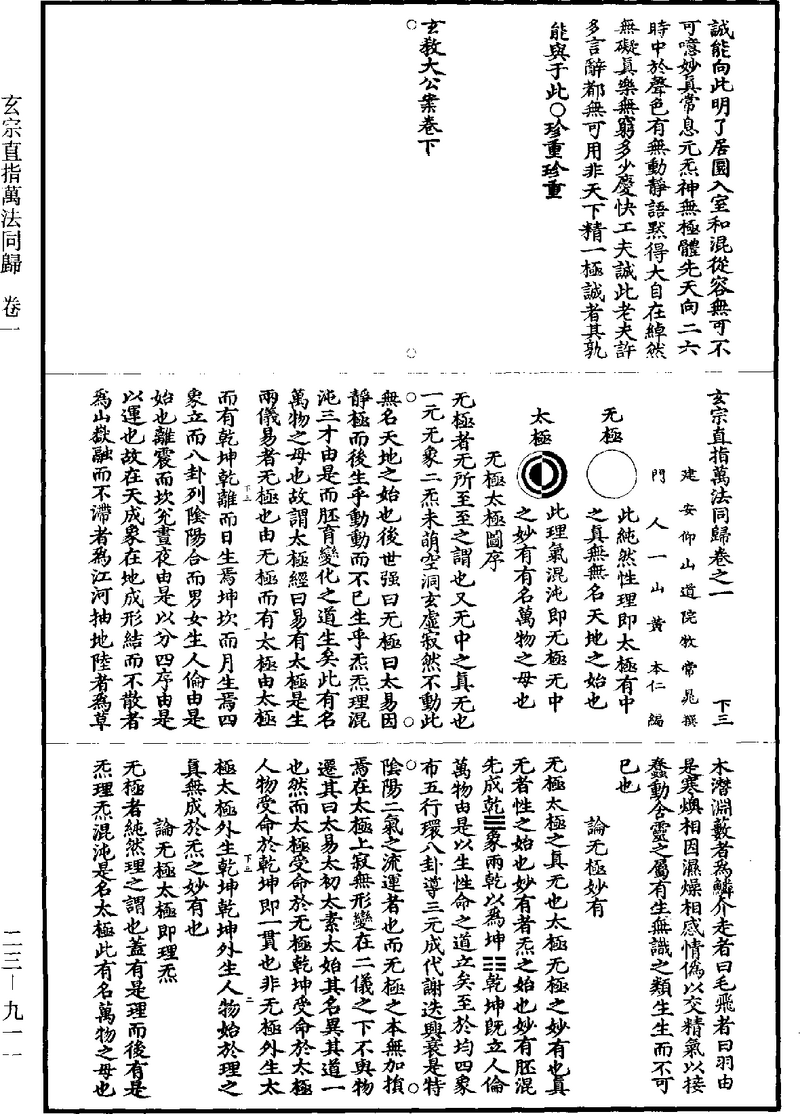 玄宗直指萬法同歸 卷一
二三—九一一
誠能向此明了居圜入室和混從容無可不
可噫妙真常息元炁神無極體先天向二六
時中於聲色有無動靜語默得大自在綽然
無礙真樂無窮多少慶快工夫誠此老夫許
多言辭都無可用非天下精一極誠者其孰
能與于此○珍重珍重
玄教大公案卷下
玄宗直指萬法同歸卷之一 下三
建安仰山道院牧常晁撰
門人一山黃本仁編
无極
此純然性理即太極有中
之真無無名天地之始也
太極
此理氣混沌即无極无中
之妙有有名萬物之母也
无極太極圖序
无極者无所至至之謂也又无中之真无也
一元无象二炁未萌空洞玄虛寂然不動此
無名天地之始也後世强曰无極曰太易因
靜極而後生乎動動而不已生乎炁炁理混
沌三才由是而胚育變化之道生矣此有名
萬物之母也故謂太極經曰易有太極是生
兩儀易者无極也由无極而有太極由太極
而有乾坤乾離而日生焉坤坎而月生焉四
象立而八卦列陰陽合而男女生人倫由是
始也離震而坎兊晝夜由是以分四序由是
以運也故在天成象在地成形結而不散者
爲山嶽融而不滯者爲江河抽地陸者爲草
木潛淵藪者爲鱗介走者曰毛飛者曰羽由
是寒燠相因濕燥相感情僞以交精氣以接
蠢動含靈之屬有生無識之類生生而不可
已也
論无極妙有
无極太極之真无也太極无極之妙有也真
无者性之始也妙有者炁之始也妙有胚混
先成乾☰象兩乾以爲坤☷乾坤旣立人倫
萬物由是以生性命之道立矣至於均四象
布五行環八卦導三元成代謝迭興衰是特
陰陽二氣之流運者也而无極之本無加損
焉在太極上寂無形變在二儀之下不與物
遷其曰太易太初太素太始其名異其道一
也然而太極受命於无極乾坤受命於太極
人物受命於乾坤即一貫也非无極外生太
極太極外生乾坤乾坤外生人物始於理之
真無成於炁之妙有也
論无極太極即理炁
无極者純然理之謂也蓋有是理而後有是
炁理炁混沌是名太極此有名萬物之母也